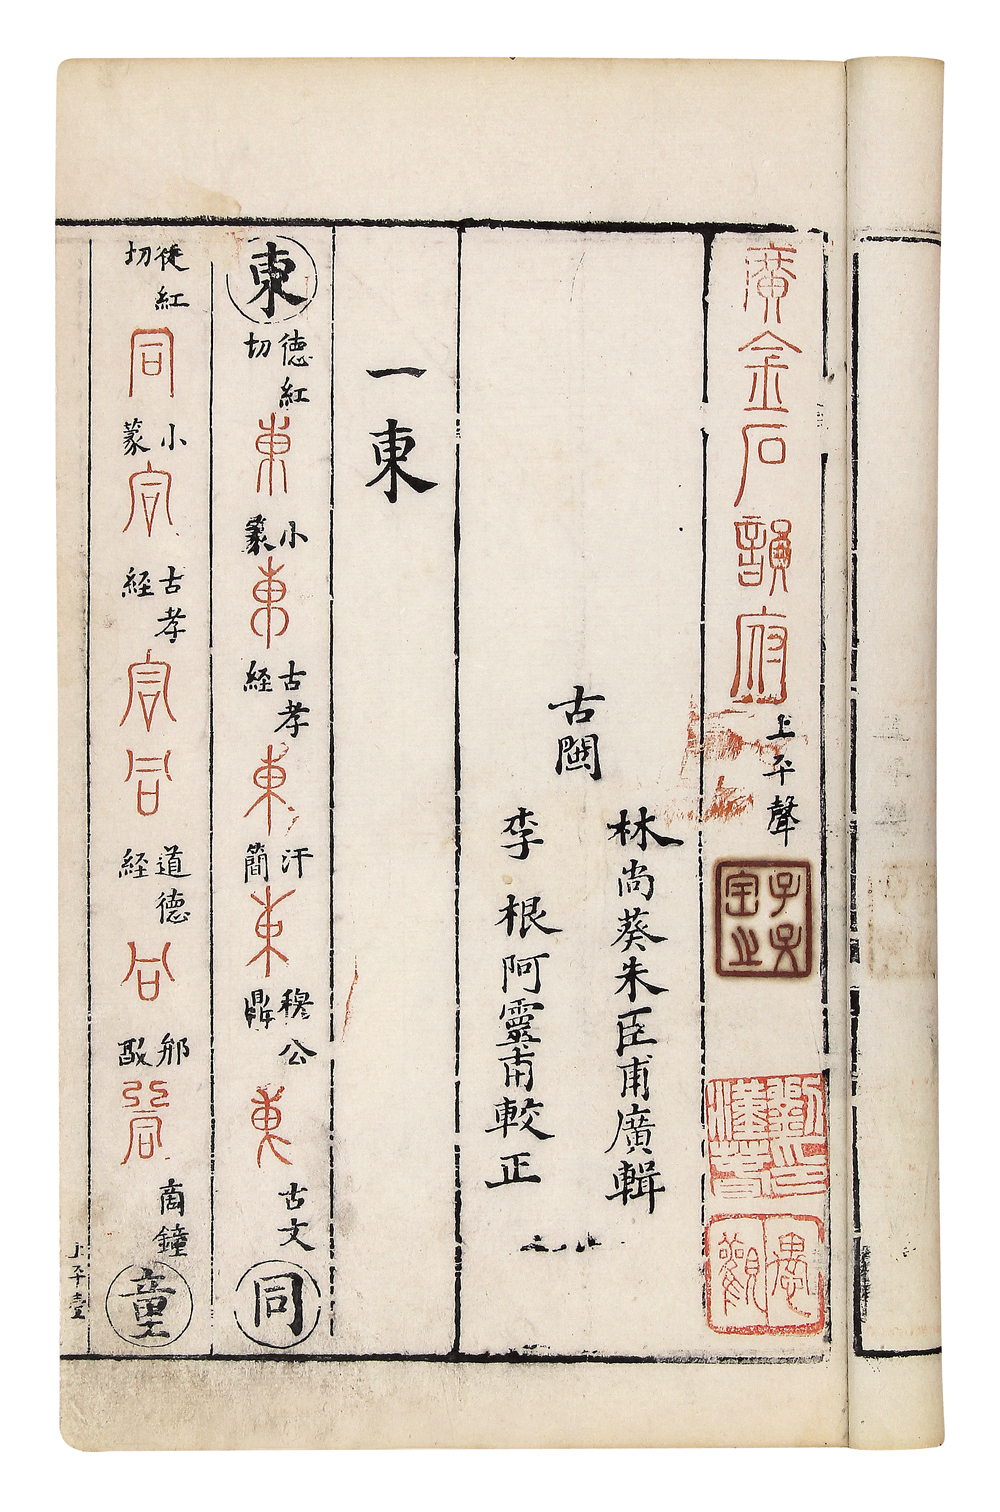 廣金石韻府上平聲
古閩
林尚葵朱臣甫廣輯
李根阿靈甫較正
一東
東德紅切東小篆東古孝経東汗簡東穆公鼎東古文同
徒紅切同小篆同古孝経同同道德経同同商鐘童
上平壹